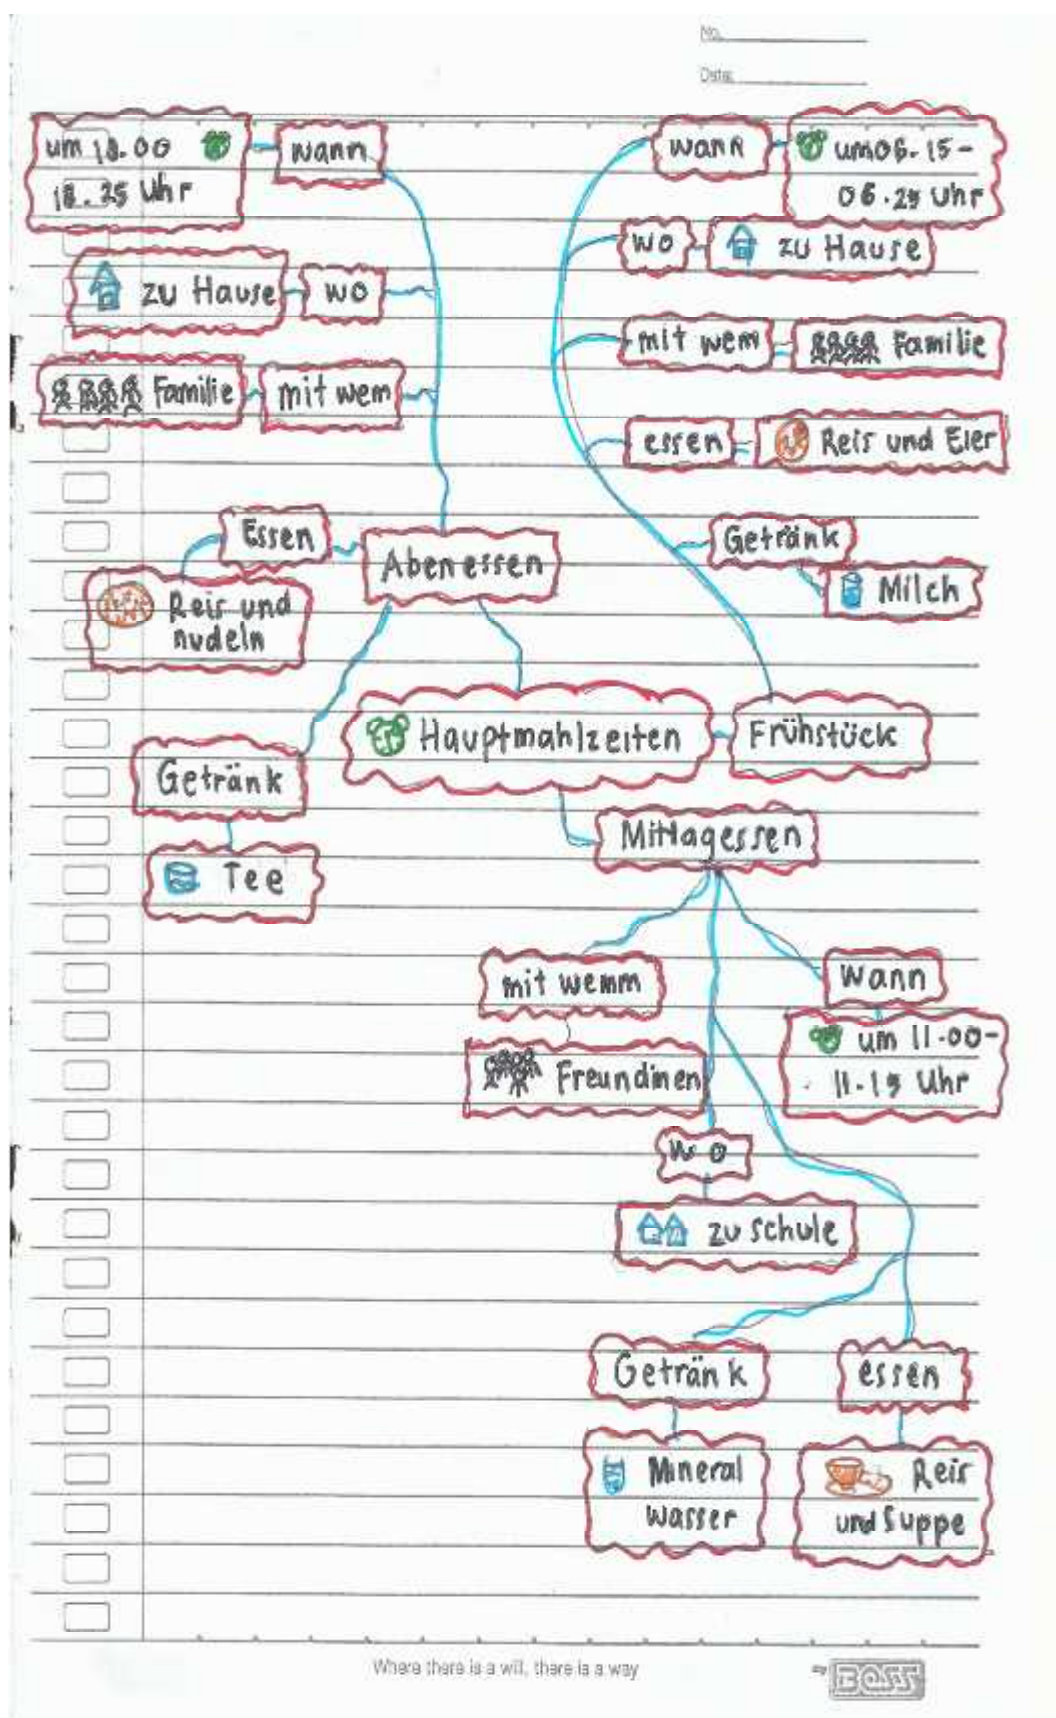 No.
Date:
um 18.00
18.25 Uhr
wann
zu Hause
wo
Familie
mit wem
Essen
Reis und
nudeln
Abenessen
Getränk
Tee
wann
um 06.15-
06.25 Uhr
wo
zu Hause
mit wem
Familie
essen
Reis und Eier
Getränk
Milch
Hauptmahlzeiten
Frühstück
Mittagessen
mit wemm
Freundinen
wann
um 11.00-
11.15 Uhr
wo
zu schule
Getränk
Mineral
wasser
essen
Reis
und Suppe
Where there is a will, there is a way
BOSS